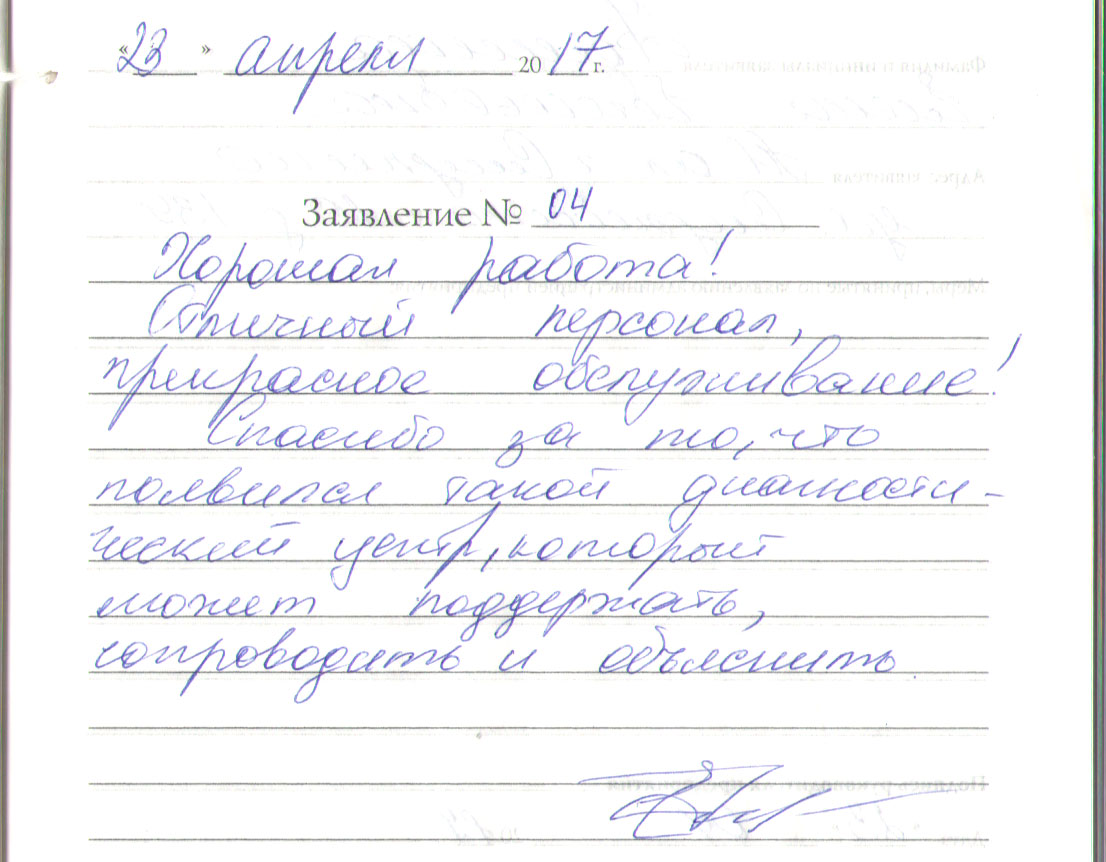 «23» апреля 2017 г.
Заявление № 04
Хорошая работа!
Отличный персонал,
прекрасное обслуживание!
Спасибо за то, что
появился такой диагности-
ческий центр, который
может поддержать,
сопроводить и объяснить.